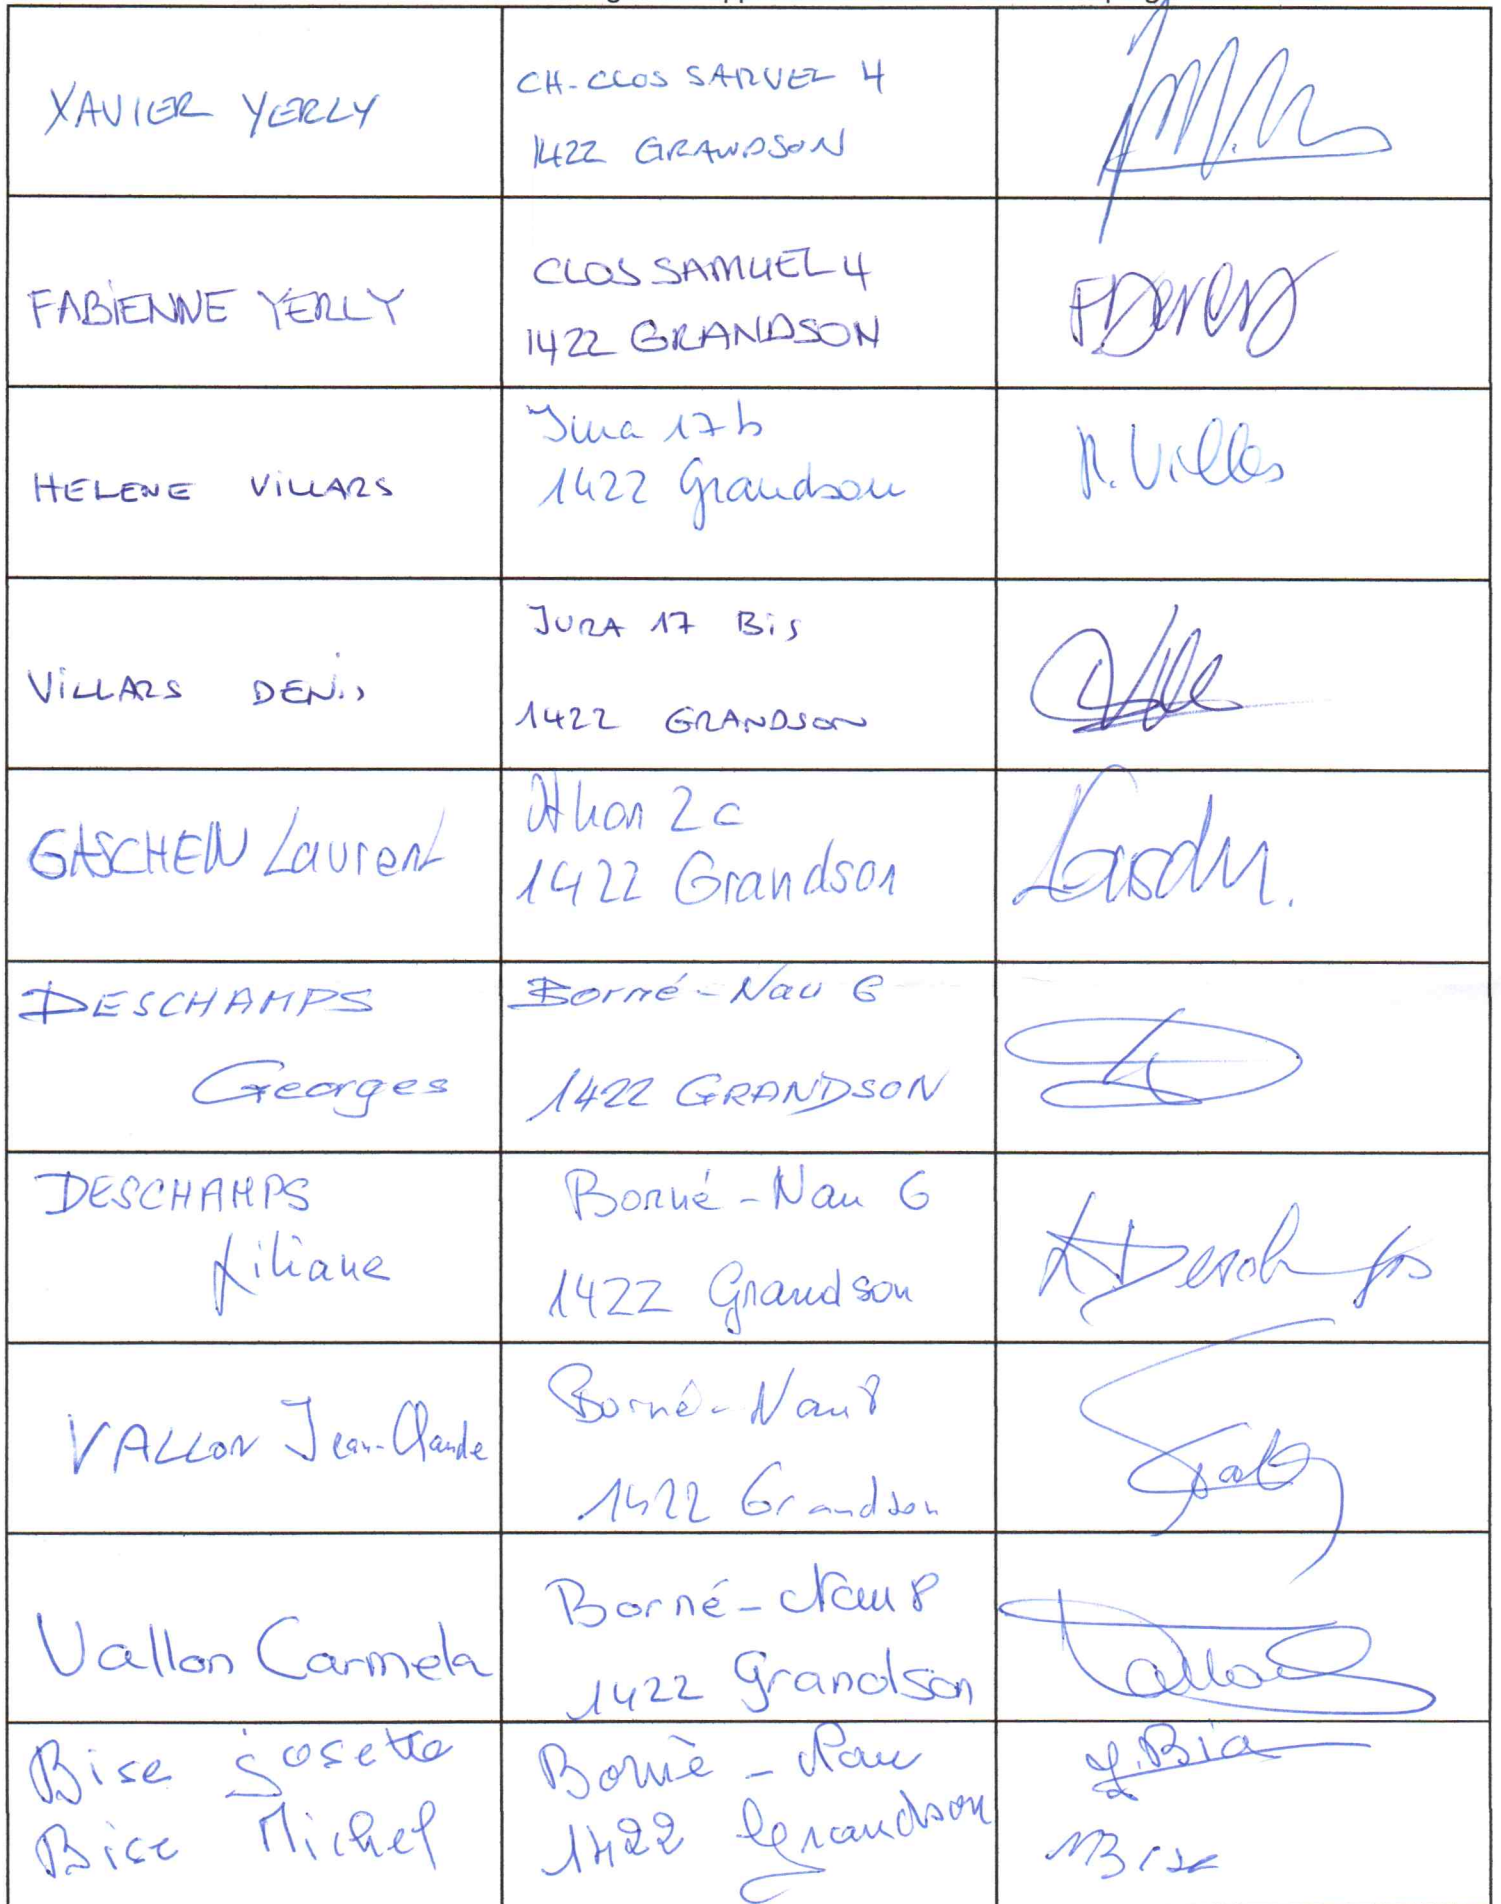 XAVIER YERLY
CH. CLOS SAMUEL 4
1422 GRANDSON
FABIENNE YERLY
CLOS SAMUEL 4
1422 GRANDSON
HELENE VILLARS
Jura 17b
1422 Grandson
VILLARS DENIS
JURA 17 Bis
1422 GRANDSON
GASCHEN Laurent
1422 Grandson
DESCHAMPS
Georges
Borné-Nau 6
1422 GRANDSON
DESCHAMPS
Liliane
Borné-Nau 6
1422 Grandson
L Deschamps
VALLON Jean-Claude
Borné-Nau 8
1422 Grandson
Vallon Carmela
Borné-Nau 8
1422 Grandson
Bise Josette
Bise Michel
Borné-Nau
1422 Grandson
MBise